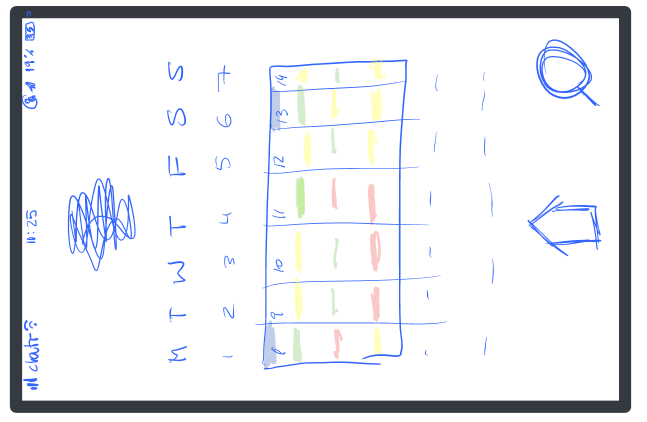 chatr 11:25 19%
M T W T F S S
1 2 3 4 5 6 7
8 9 10 11 12 13 14